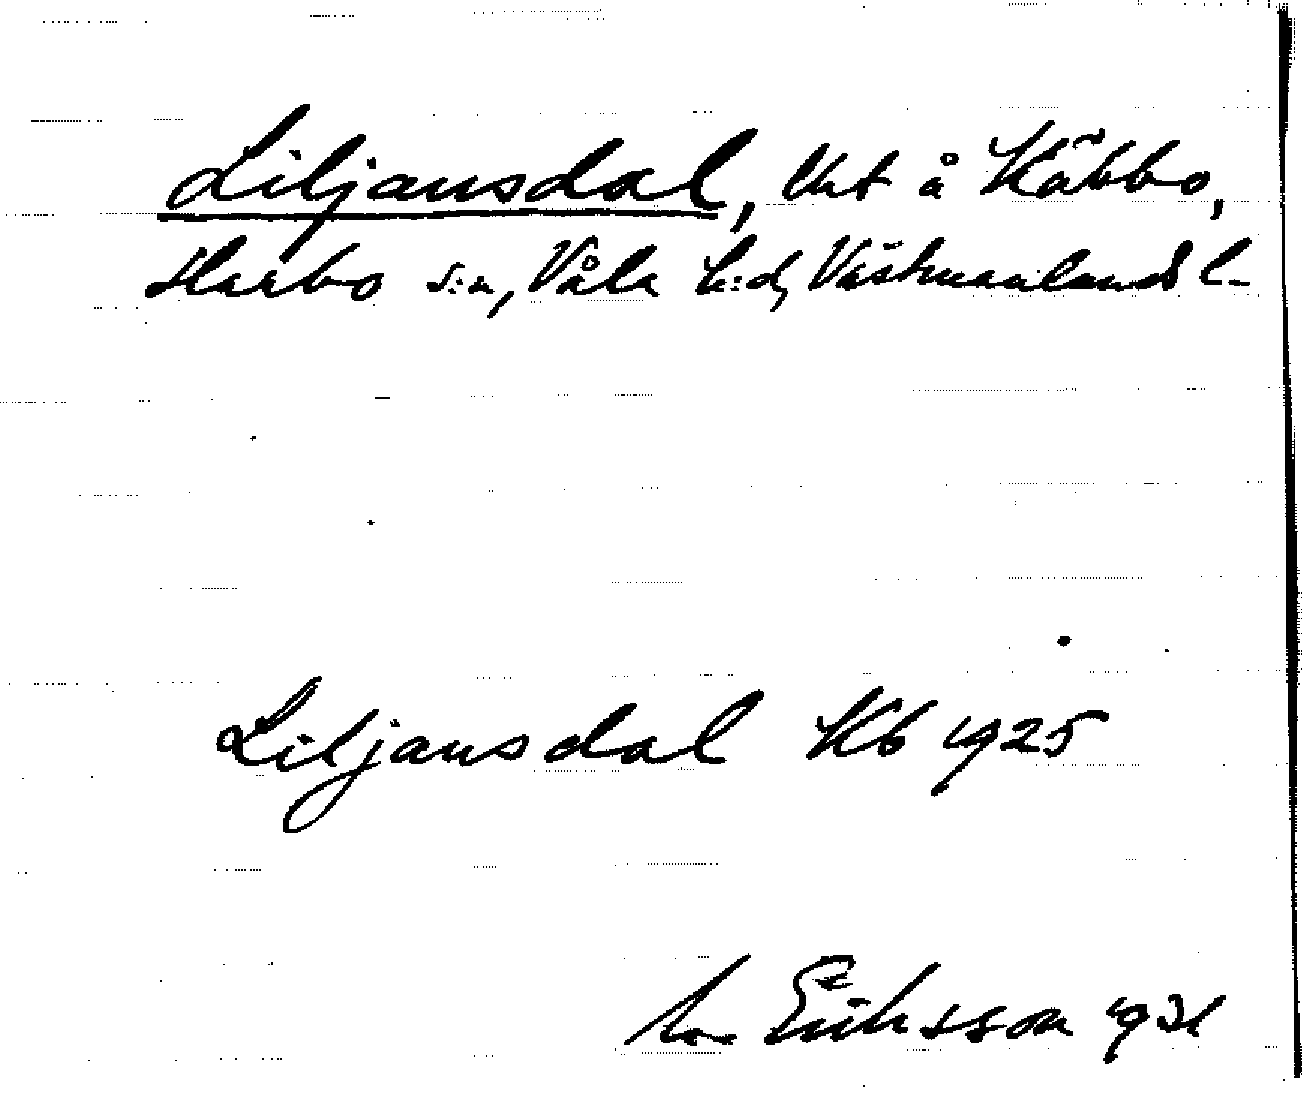 Liljansdal, Ukt å Käbbo,
Harbo s:n, Våla h:d, Västmanlands l.
Liljansdal Kb 1925
Eriksson 1931